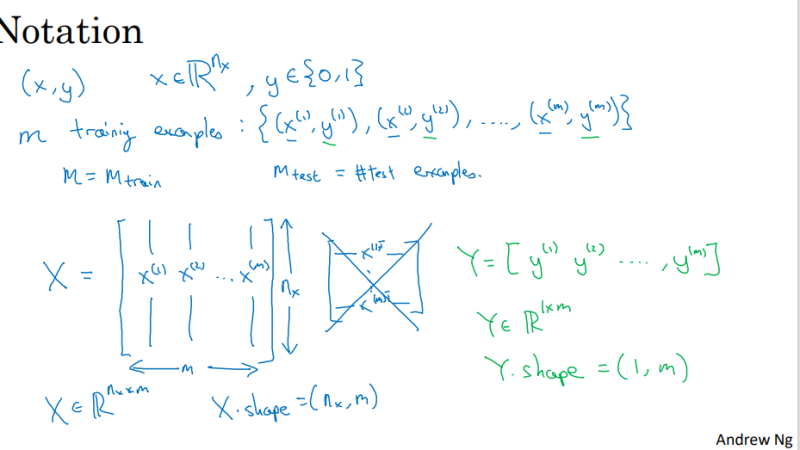 Notation
(x,y) x∈ℝ^{n_x}, y∈{0,1}
m training examples : {(x^{(1)}, y^{(1)}), (x^{(2)}, y^{(2)}), ...., (x^{(m)}, y^{(m)})}
M = M_{train} M_{test} = #test examples.
X = [x^{(1)} x^{(2)} ... x^{(m)}] n_x
m
x^{(1)T}
x^{(m)T}
Y = [y^{(1)} y^{(2)} ...., y^{(m)}]
Y ∈ ℝ^{1×m}
Y.shape = (1, m)
X ∈ ℝ^{n_x×m} X.shape = (n_x, m)
Andrew Ng